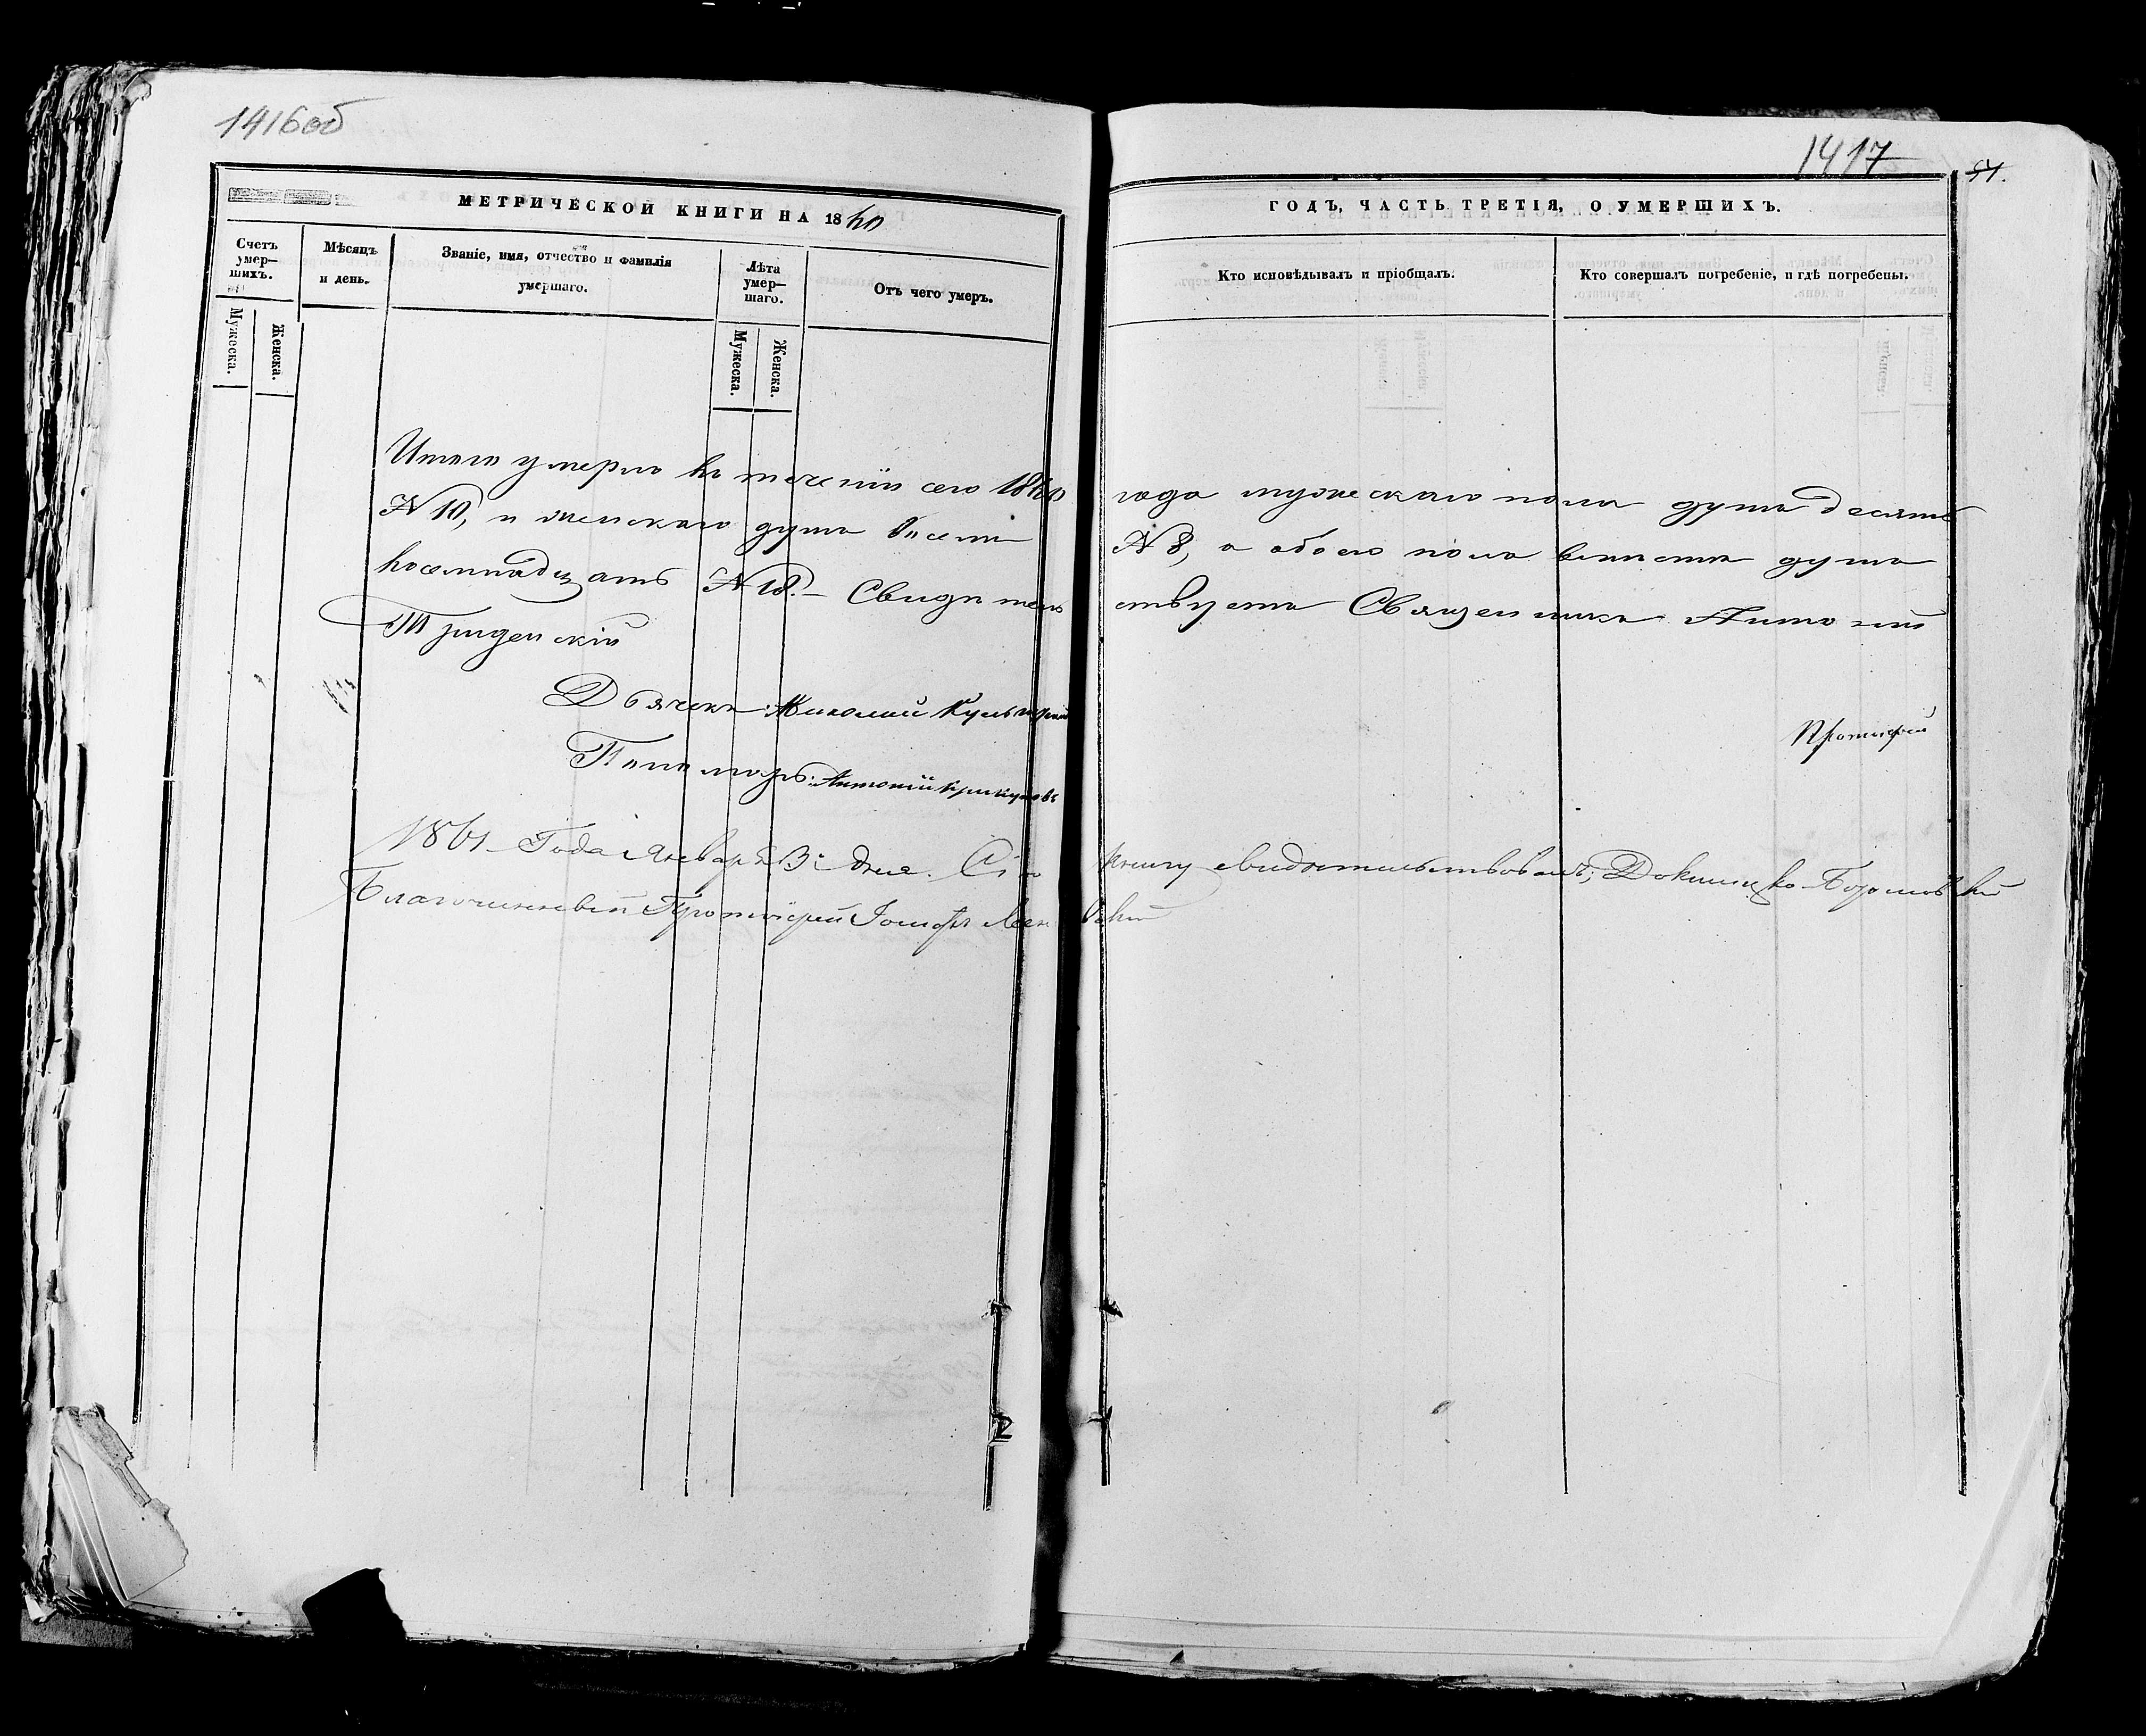 1416об
МЕТРИЧЕСКОЙ КНИГИ НА 1860
Счетъ умер—шихъ.
Мужеска.
Женска.
Мѣсяцъ и день.
Званіе, имя, отчество и фамилія умершаго.
Лѣта умер—шаго.
Мужеска.
Женска.
Отъ чего умеръ.
Итого умерло въ теченіи сего 1860
N 10, и женскаго душъ восемь
восемнадцать N 18. – Свидѣтель
Дьячекъ: Николай
Пономарь: Антоній
1861 Года Января 3 дня. Сію
Благочинный Протоіерей Іосифъ
1417
51.
ГОДЪ, ЧАСТЬ ТРЕТІЯ, О УМЕРШИХЪ.
Кто исповѣдывалъ и пріобщалъ.
Кто совершалъ погребеніе, и гдѣ погребены.
года мужескаго пола душъ десять
N 8, а обоего пола вмѣстѣ душъ
ствуетъ Священникъ Антоній
книгу свидѣтельствовалъ;